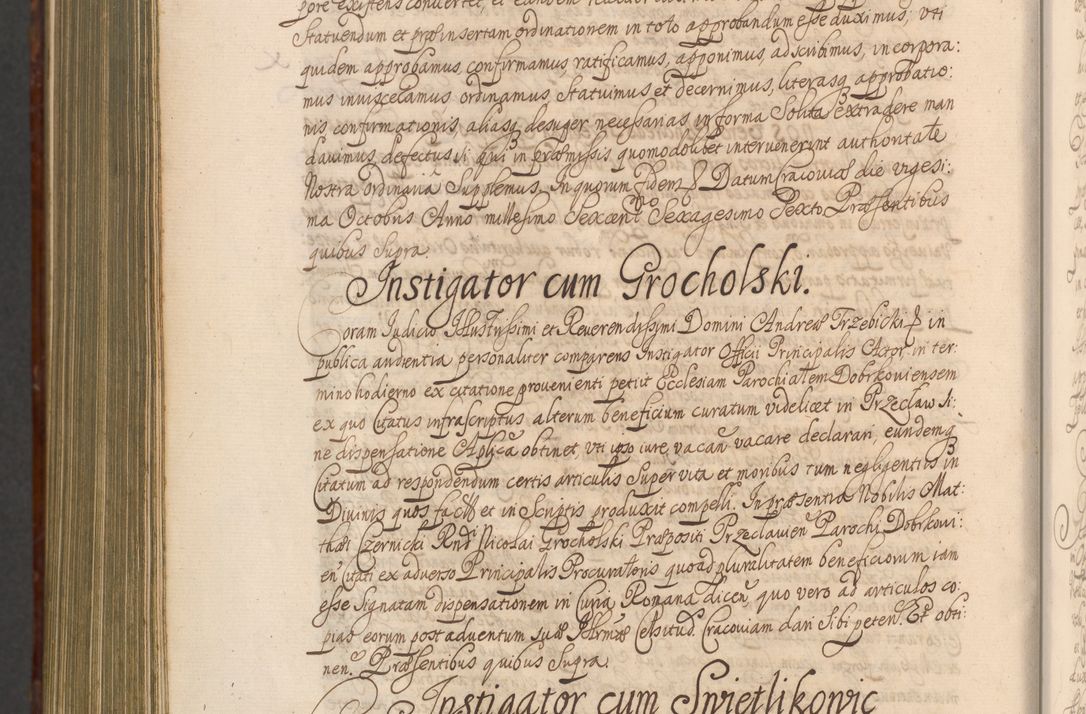 pore existens convertet, et eandem
Statuendum et præinsertam ordinationem in toto approbandum esse duximus, uti
quidem approbamus, confirmamus, ratificamus, apponimus, adscribimus, incorpora:
mus inviscelamus ordinamus, Statuimus et decernimus, literasq approbatio:
nis confirmationis, aliasq desuper necessarias in forma Solita extradere man
davimus, defectus si qui in præmissis quomodolibet intervenerint authoritate
Nostra ordinaria Supplemus. In quorum fidem Datum Cracoviæ die vigesi:
ma Octobris Anno millesimo Sexcent Sexagesimo Sexto Præsentibus
quibus Supra.
Instigator cum Grocholski.
Coram Iudicio Illustrissimi et Reverendissimi Domini Andreæ Trzebicki in
publica audientia personaliter comparens Instigator Officii Principalis Actor in ter:
mino hodierno ex citatione provenienti petiit Ecclesiam Parochialem Dobrkoviensem
ex quo Citatus infrascriptus alterum beneficium curatum videlicet in Przeclaw Si:
ne dispensatione Aplica obtinet, uti ipso iure vacan vacare declarari, eundemq
Citatum ad respondendum certis articulis Super vita et moribus tum negligentiis in
Divinis quos facit et in Scriptis produxit compelli. In præsentia Nobilis Mat:
thæi Czernicki Rndi Nicolai Grocholski Præpositi Przeclavien Parochi Dobrkovi:
en Citati ex adverso Principalis Procuratoris quoad pluralitatem beneficiorum iam
esse Signatam dispensationem in Curia Romana dicen, quo vero ad articulos co:
pias eorum post adventum suæ Illrmæ Celsitud Cracoviam dari Sibi peten. Et obti:
nen. Præsentibus quibus Supra.
Instigator cum Swietlikowic